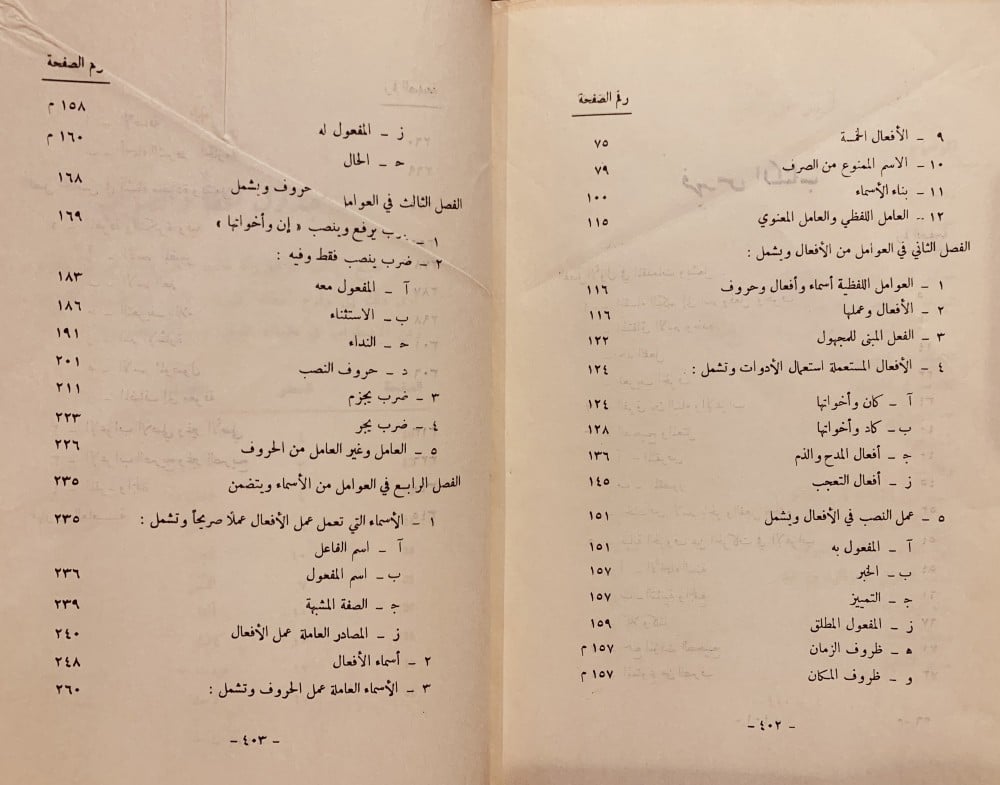 رقم الصفحة
٩ ـ الأفعال الخمسة ٧٥
١٠ـ الاسم الممنوع من الصرف ٧٩
١١ ـ بناء الأسماء ١٠٠
١٢ .. العامل اللفظي والعامل المعنوي ١١٥
الفصل الثاني في العوامل من الأفعال ويشمل :
١ ـ العوامل اللفظية أسماء وأفعال وحروف ١١٦
٢ ـ الأفعال وعملها ١١٦
٣ ـ الفعل المبنى للمجهول ١٢٢
٤ ـ الأفعال المستعملة استعمال الأدوات وتشمل : ١٢٤
آ ـ كان وأخواتها ١٢٤
ب ـ كاد وأخواتها ١٢٨
جـ ـ أفعال المدح والذم ١٣٦
ز ـ أفعال التعجب ١٤٥
٥ ـ عمل النصب في الأفعال ويشمل ١٥١
آ ـ المفعول به ١٥١
ب ـ الخبر ١٥٧
جـ ـ التمييز ١٥٧
ز ـ المفعول المطلق ١٥٩
هـ ـ ظروف الزمان ١٥٧ م
و ـ ظروف المكان ١٥٧ م
ـ ٤٠٢ ـ
رم الصفحة
ز ـ المفعول له ١٥٨ م
حـ ـ الحال ١٦٠ م
الفصل الثالث في العوامل حروف ويشمل ١٦٨
١ ـ ضرب يرفع وينصب « إن وأخواتها » ١٦٩
٢ ـ ضرب ينصب فقط وفيه :
آ ـ المفعول معه ١٨٣
ب ـ الاستثناء ١٨٦
حـ ـ النداء ١٩١
د ـ حروف النصب ٢٠١
٣ ـ ضرب يجزم ٢١١
٤ ـ ضرب يجر ٢٢٣
٥ ـ العامل وغير العامل من الحروف ٢٢٦
الفصل الرابع في العوامل من الأسماء ويتضمن ٢٣٥
١ ـ الأسماء التي تعمل عمل الأفعال عملاً صريحاً وتشمل : ٢٣٥
آ ـ اسم الفاعل
ب ـ اسم المفعول ٢٣٦
جـ ـ الصفة المشبهة ٢٣٩
ز ـ المصادر العاملة عمل الأفعال ٢٤٠
٢ ـ أسماء الأفعال ٢٤٨
٣ ـ الأسماء العاملة عمل الحروف وتشمل : ٢٦٠
ـ ٤٠٣ ـ